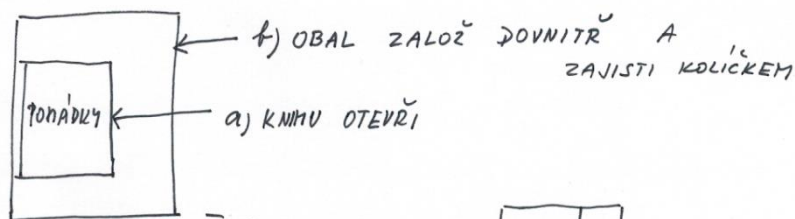 b) OBAL ZALOŽ DOVNITŘ A
ZAJISTI KOLÍČKEM
POHÁDKY
a) KNIHU OTEVŘI